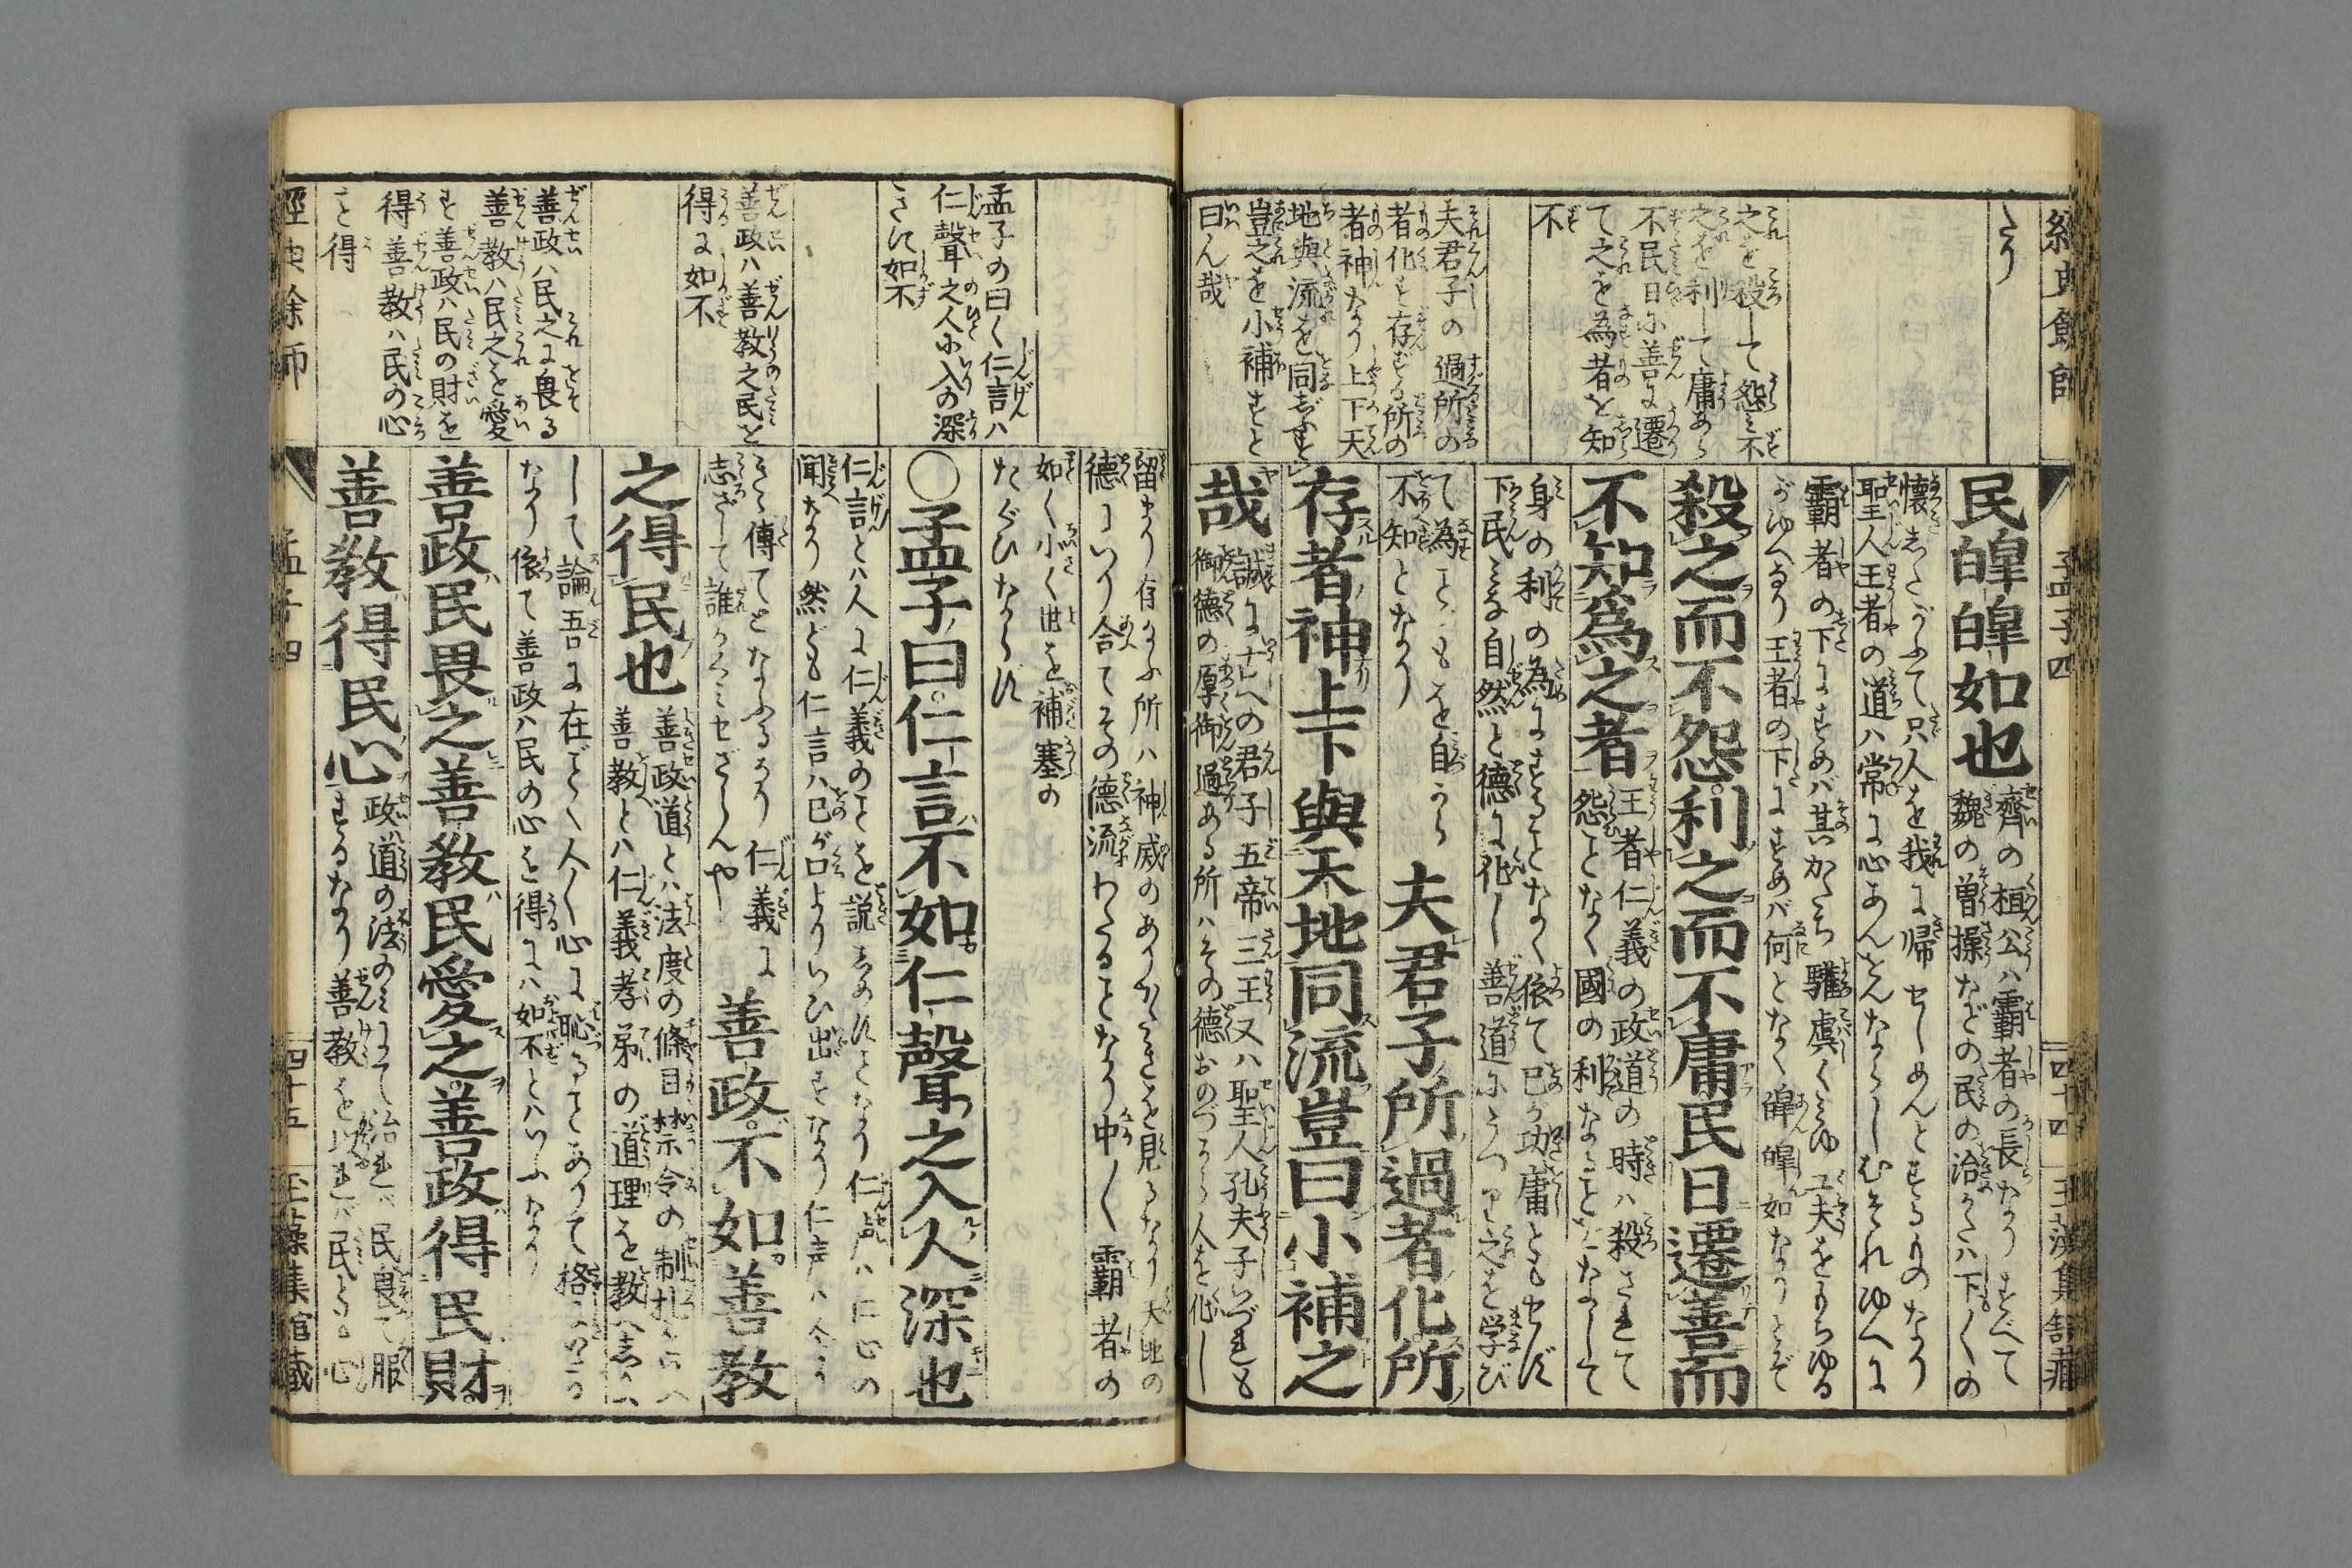 經典餘師
孟子四
四十四
玉藻集舘藏
たり
之を殺して怨不
之を利して庸あら
不民日に善に遷
て之を為者を知
不
夫君子の過所の
者化を存ずる所の
者神なり上下天
地與流を同ず
豈之を小補すと
曰ん哉
民皥皥如也
齊の桓公ハ霸者の長なりすべて
魏の曽操などの民の治かたハ下〱の
懐したがふて只人を我に帰せしめんとするものなり
聖人王者の道ハ常に心あんをんならしむそれゆへに
霸者の下にすめバ其かたち驩虞くみゆ工夫をもちゆる
がゆへなり王者の下にすめバ何となく皥皥如なりとぞ
殺之而不怨利之而不庸民日遷善而
不知為之者
王者仁義の政道の時ハ殺されて
怨ことなく國の利なることをなして
身の利の為にすることなく依て己が功庸ともせず
下民みな自然と德に化し善道にうつり之を学び
て為ことをも自から
不知となり
夫君子所過者化所
存者神上下與天地同流豈曰小補之
哉
誠に古への君子五帝三王又ハ聖人孔夫子いづれも
御德の厚御過ある所ハその德おのづから人を化し
孟子の曰く仁言ハ
仁聲之人に入の深
きに如不
善政ハ善教之民を
得に如不
善政ハ民之に畏る
善教ハ民之を愛
す善政ハ民の財を
得善教ハ民の心
を得
留まり存なふ所ハ神威のありがたきを見るなり天地の
德にいり合てその德流わたることなり中〱霸者の
如く小く世を補塞の
たぐひならず
〇孟子曰仁言不如仁聲之入人深也
仁言とハ人に仁義のことを説しめすことなり仁声ハ仁心の
聞へなり然ども仁言ハ己が口よりいひ出すなり仁声ハ今に
きゝ傳てとなふるなり仁義に
志ざして誰かくミセざらんや
善政不如善教
之得民也
善政道とハ法度の條目禁令の制札をいへ
善教とハ仁義孝弟の道理を教へ
して論吾に在ごとく人〱心に恥ることありて格
なり依て善政ハ民の心を得にハ如不とハいふなり
善政民畏之善教民愛之善政得民財
善教得民心
政道の法のミにて治れバ民畏て服
するなり善教を以すれバ民
經典餘師
孟子四
四十五
玉藻集舘藏